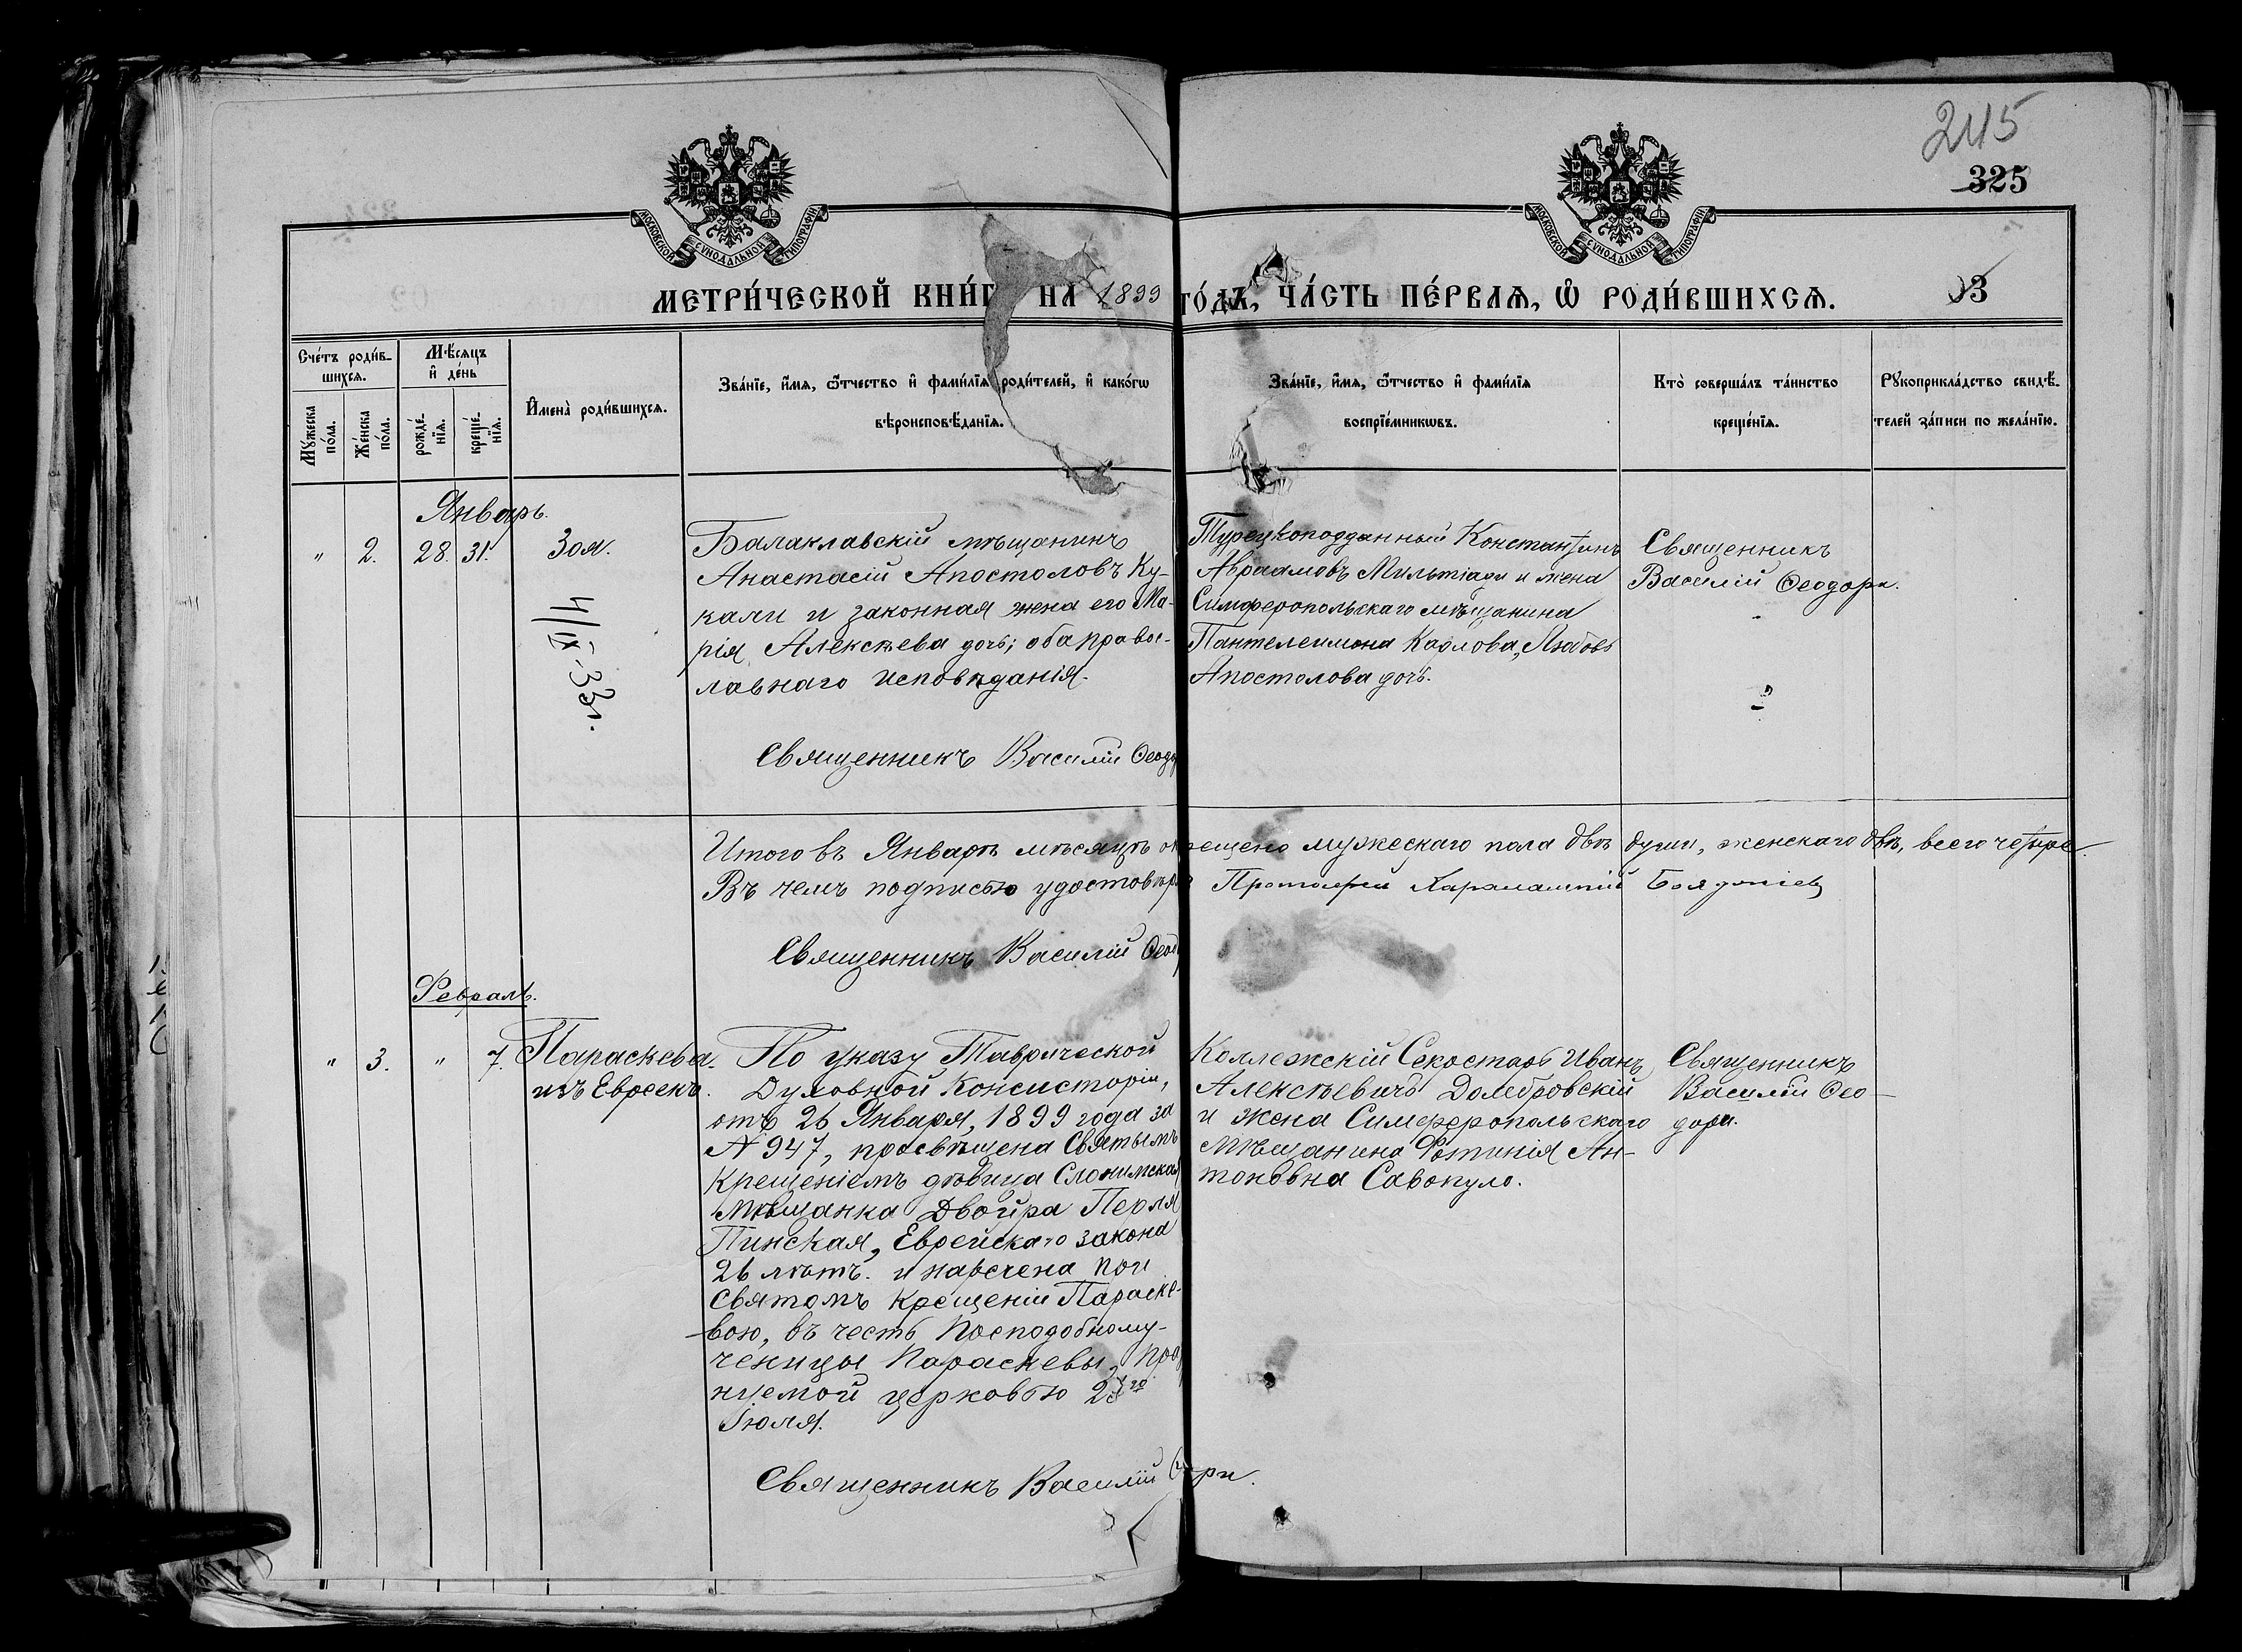 245
325
МОСКОВСКОЙ СѴНОДАЛЬНОЙ ТИПОГРАФІИ
МОСКОВСКОЙ СѴНОДАЛЬНОЙ ТИПОГРАФІИ
МЕТРИ́ЧЕСКОЙ КНИ́Г НА 1899 ГО́ДЪ, ЧА́СТЬ ПЕ́РВАЯ, Ѡ РОДИ́ВШИХСЯ.
93
Сче́тъ роди́в-
шихся.
Мѣ́сяцъ
и҆ де́нь
Мꙋ́жеска
по́ла.
Же́нска
по́ла.
рожде́-
нїя.
креще́-
нїя.
И҆мена̀ роди́вшихся.
Зва́нїе, и҆́мя, ѻ҆́тчество и҆ фами́лїя роди́телей, и҆ како́гѡ
вѣроисповѣ́данїя.
Зва́нїе, и҆́мя, ѻ҆́тчество и҆ фами́лїя
воспрїе́мникѡвъ.
Кто̀ соверша́лъ та́инство
креще́нїя.
Рꙋкоприкла́дство свидѣ́-
телей за́писи по жела́нїю.
Январь.
" 2. 28. 31. Зоя.
4/IX-33г.
Балаклавскій мѣщанинъ
Анастасій Апостоловъ Ку-
кали и законная жена его Ма-
рія Алексѣева дочь; оба правос-
лавнаго исповѣданія.
Священникъ Василій Ѳеодо
Турецкоподданный Константинъ
Авраамовъ Мильтіади и жена
Симферопольскаго мѣщанина
Пантелеимона Карлова, Любовь
Апостолова дочь.
Священникъ
Василій Ѳеодори.
Итого въ Январѣ мѣсяцѣ крещено мужескаго пола двѣ души, женскаго двѣ, всего четыре.
Въ чемъ подписью удостовѣр Протоіерей Харалампій
Священникъ Василій Ѳеод
Февраль.
" 3. " 7. Параскева.
изъ Евреекъ.
По указу Таврической
Духовной Консисторіи,
отъ 26 Января, 1899 года за
№ 947, просвѣщена Святымъ
Крещеніемъ дѣвица Слонимская
Мѣщанка Двойра Перля
Пинская, Еврейскаго закона
26 лѣтъ. и наречена при
Святомъ Крещеніи Параске-
вою, въ честь Преподобному-
ченицы Параскевы, праз
нуемой церковью
Іюля.
Священникъ Василій ри.
Коллежскій Секретарь Иванъ
Алексѣевичъ Домбровскій
и жена Симферопольскаго
Мѣщанина Фотинія Ан-
тоновна Савопуло.
Священникъ
Василій Ѳео-
дори.